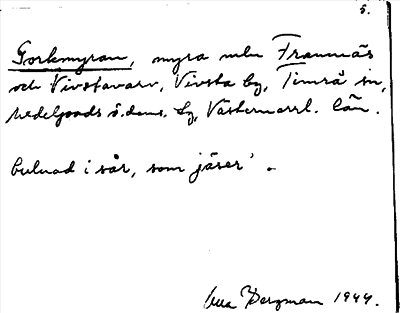 5.
Gorkmyran, myra mln Framnäs
och Vivstavarv, Vivsta by, Timrå sn,
Medelpads ö. doms. Västernorrl. län.
bulnad i sår, som jäser'.
Bergman 1944.